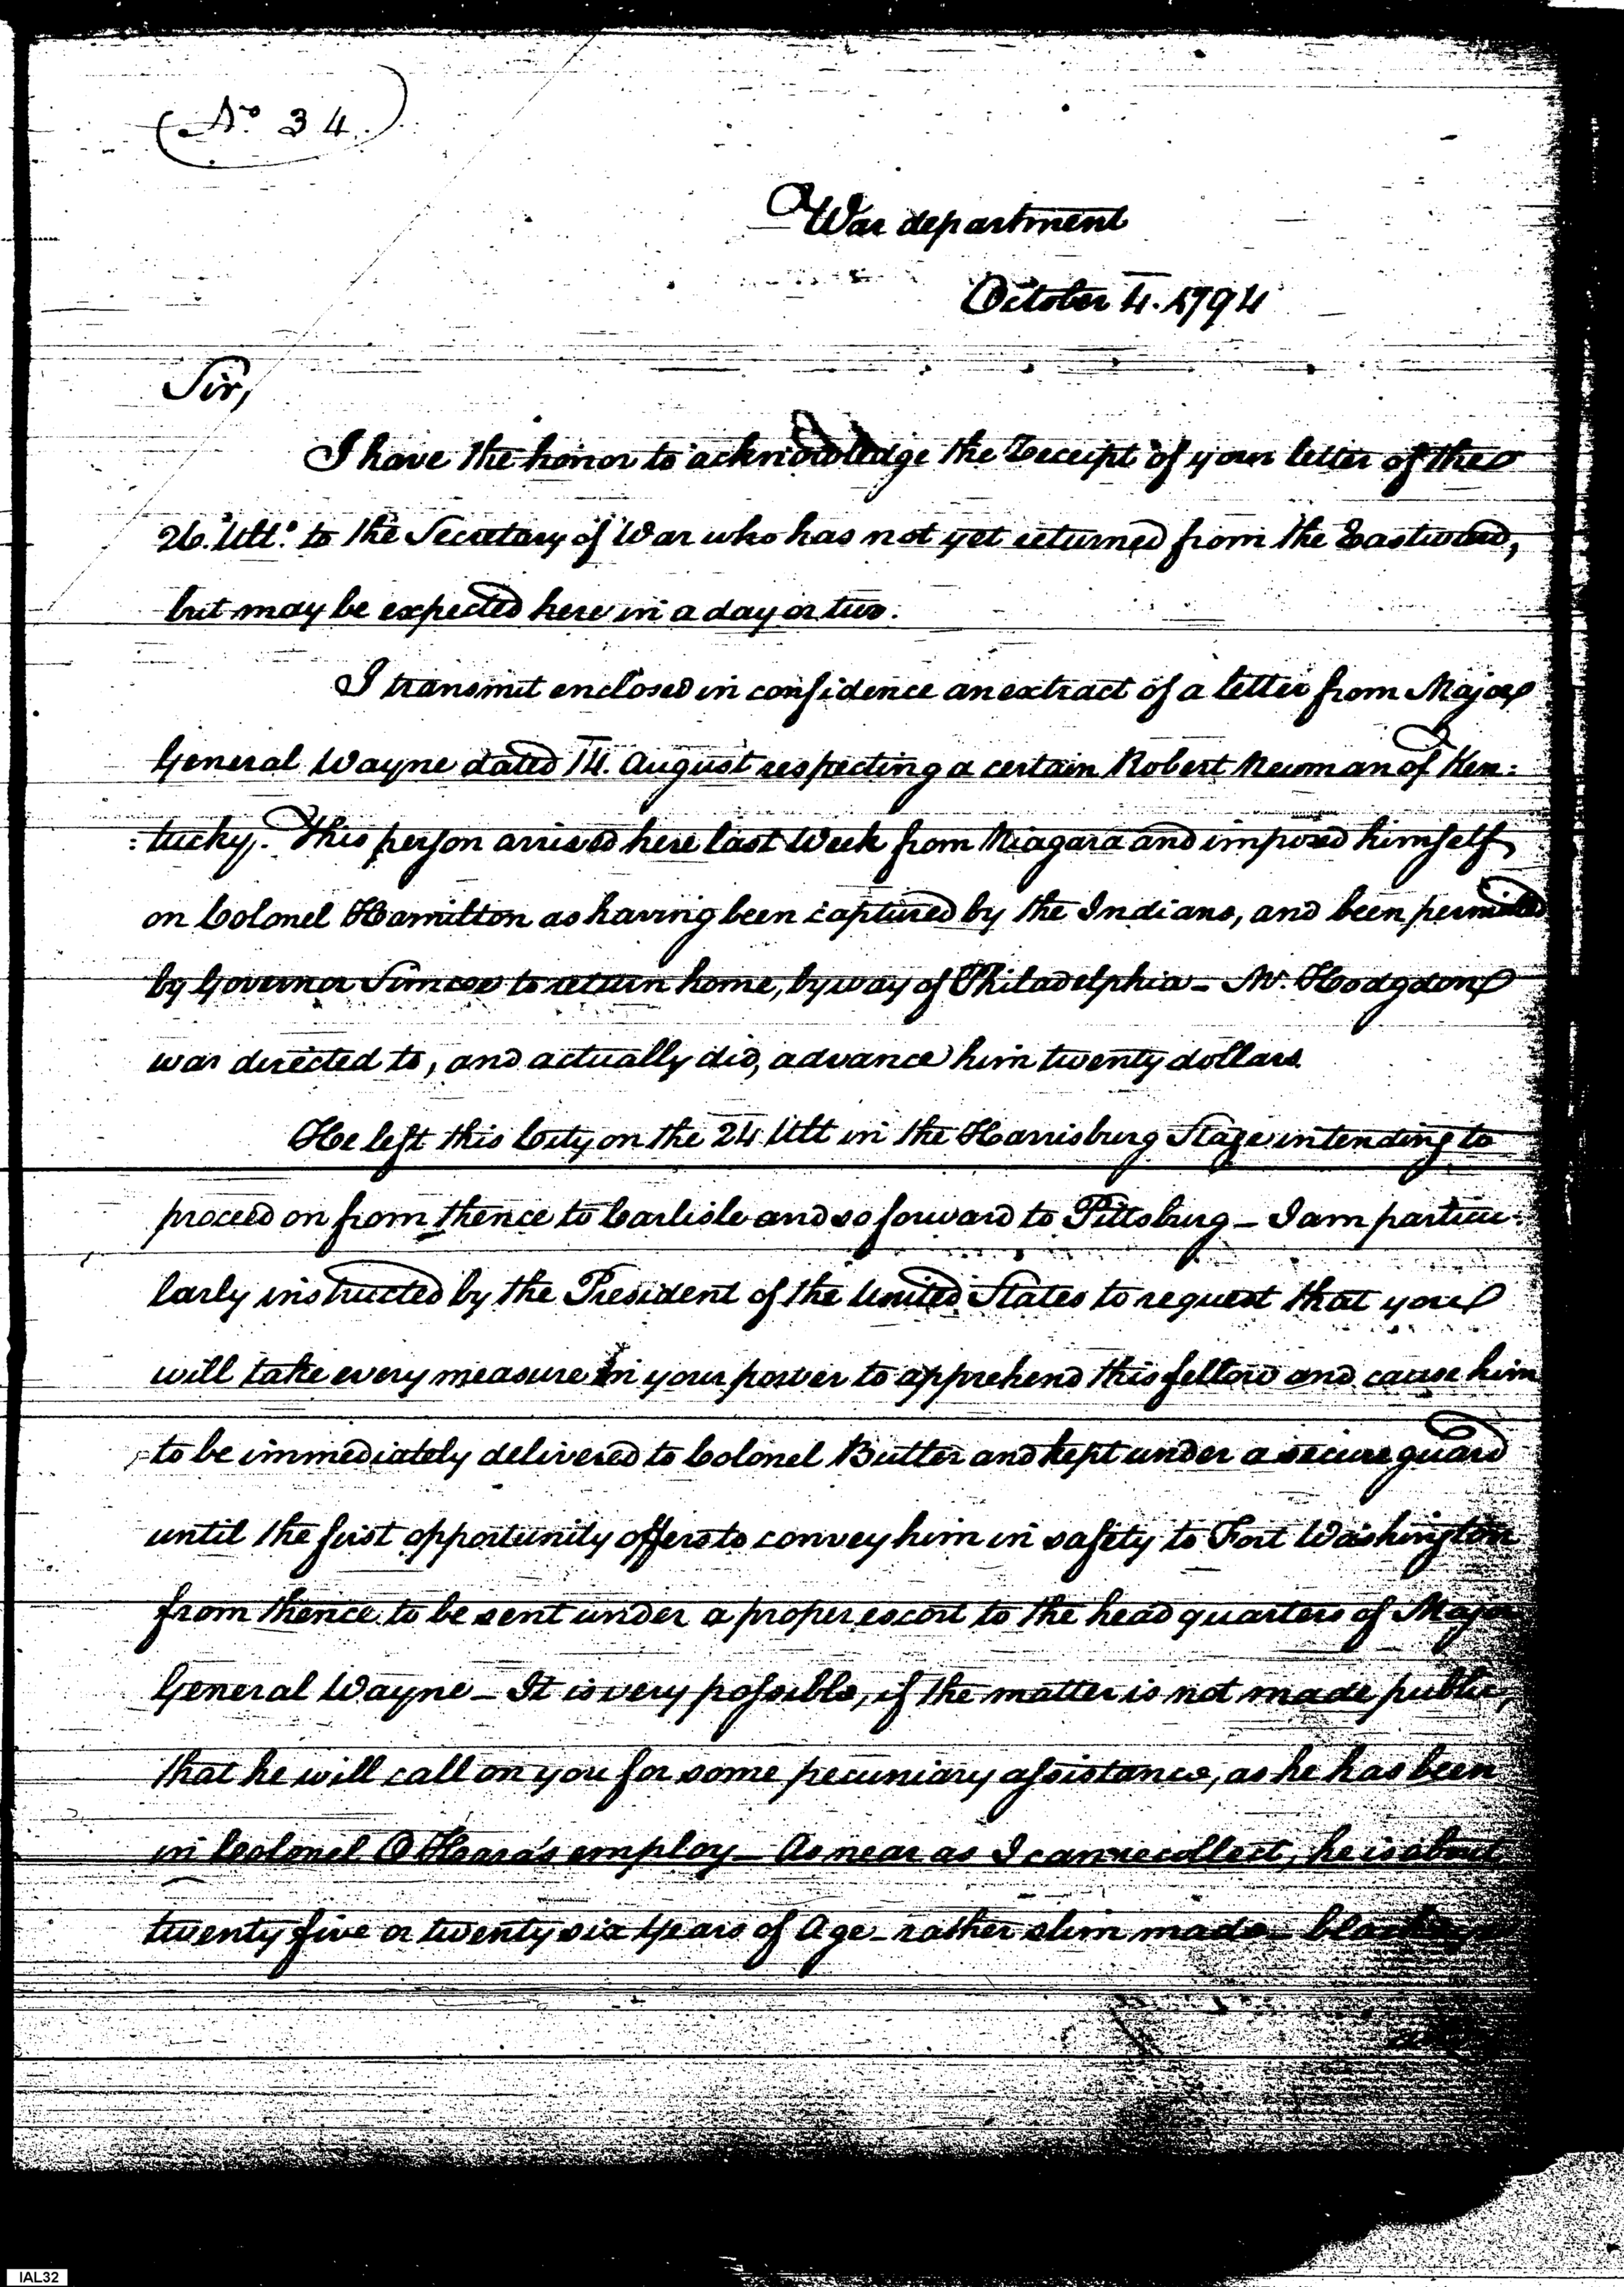 (No 34.)
War department
October 4. 1794
Sir,
I have the honor to acknowledge the Receipt of your letter of the
26. Ulto. to the Secretary of War who has not yet returned from the Eastward,
but may be expected here in a day or two.
I transmit enclosed in confidence an extract of a letter from Major
General Wayne dated 14. August respecting a certain Robert Newman of Ken:
:tucky. This person arrived here last Week from Niagara and imposed himself
on Colonel Hamilton as having been captured by the Indians, and been permitted
by Governor Simcoe to return home, by way of Philadelphia - Mr. Hodgdon
was directed to, and actually did, advance him twenty dollars.
He left this City on the 24 Ult in the Harrisburg Stage intending to
proceed on from thence to Carlisle and so forward to Pittsburg - I am particu-
larly instructed by the President of the United States to request that you
will take every measure in your power to apprehend this fellow and cause him
to be immediately delivered to Colonel Butler and kept under a secure guard
until the first opportunity offers to convey him in safety to Fort Washington
from thence to be sent under a proper escort to the head quarters of Major
General Wayne - It is very possible, if the matter is not made public,
that he will call on you for some pecuniary assistance, as he has been
in Colonel O Hara's employ - As near as I can recollect, he is about
twenty five or twenty six Years of Age - rather slim made -
IAL32